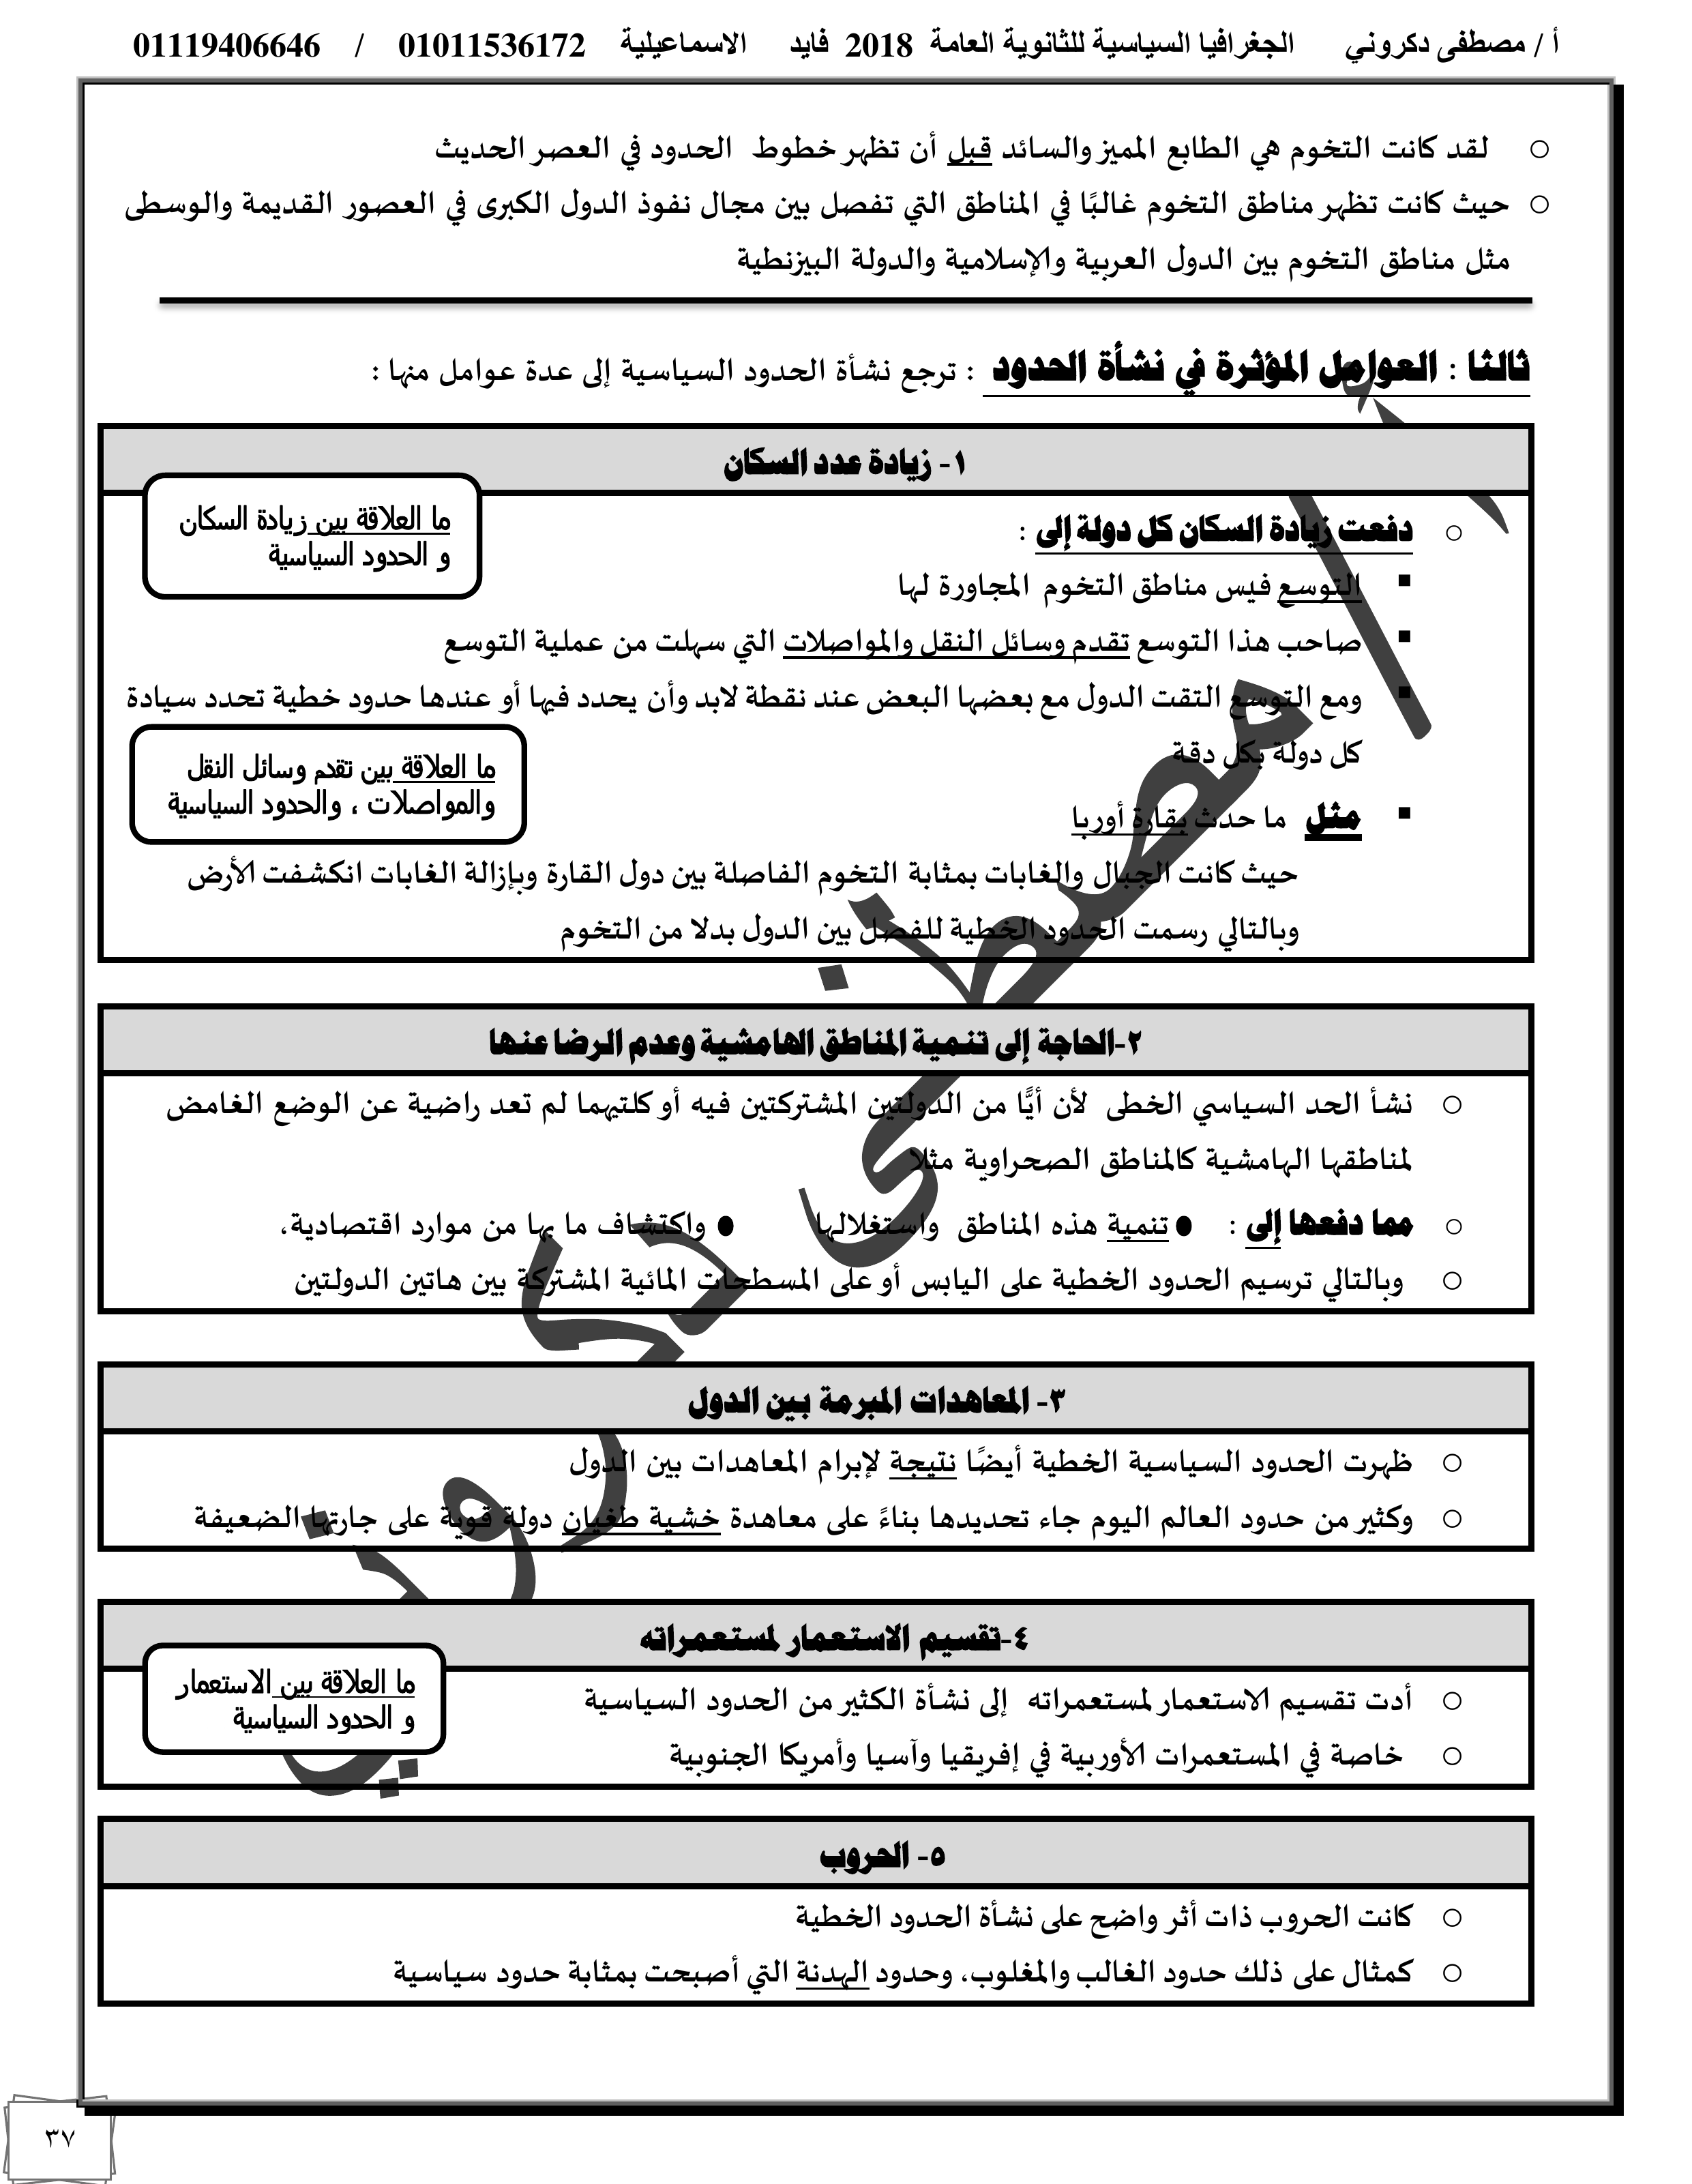 أ / مصطفى دكروني الجغرافيا السياسية للثانوية العامة 2018 فايد الاسماعيلية 01011536172 / 01119406646
لقد كانت التخوم هي الطابع المميز والسائد قبل أن تظهر خطوط الحدود في العصر الحديث
حيث كانت تظهر مناطق التخوم غالبًا في المناطق التي تفصل بين مجال نفوذ الدول الكبرى في العصور القديمة والوسطى
مثل مناطق التخوم بين الدول العربية والإسلامية والدولة البيزنطية
ثالثا : العوامل المؤثرة في نشأة الحدود : ترجع نشأة الحدود السياسية إلى عدة عوامل منها :
١- زيادة عدد السكان
ما العلاقة بين زيادة السكان
و الحدود السياسية
دفعت زيادة السكان كل دولة إلى :
التوسع فيس مناطق التخوم المجاورة لها
صاحب هذا التوسع تقدم وسائل النقل والمواصلات التي سهلت من عملية التوسع
ومع التوسع التقت الدول مع بعضها البعض عند نقطة لابد وأن يحدد فيها أو عندها حدود خطية تحدد سيادة
كل دولة بكل دقة
ما العلاقة بين تقدم وسائل النقل
والمواصلات ، والحدود السياسية
مثل ما حدث بقارة أوربا
حيث كانت الجبال والغابات بمثابة التخوم الفاصلة بين دول القارة وبإزالة الغابات انكشفت الأرض
وبالتالي رسمت الحدود الخطية للفصل بين الدول بدلا من التخوم
٢-الحاجة إلى تنمية المناطق الهامشية وعدم الرضا عنها
نشأ الحد السياسي الخطى لأن أيًّا من الدولتين المشتركتين فيه أو كلتيهما لم تعد راضية عن الوضع الغامض
لمناطقها الهامشية كالمناطق الصحراوية مثلا
مما دفعها إلى : ● تنمية هذه المناطق واستغلالها ● واكتشاف ما بها من موارد اقتصادية،
وبالتالي ترسيم الحدود الخطية على اليابس أو على المسطحات المائية المشتركة بين هاتين الدولتين
٣- المعاهدات المبرمة بين الدول
ظهرت الحدود السياسية الخطية أيضًا نتيجة لإبرام المعاهدات بين الدول
وكثير من حدود العالم اليوم جاء تحديدها بناءً على معاهدة خشية طغيان دولة قوية على جارتها الضعيفة
٤-تقسيم الاستعمار لمستعمراته
ما العلاقة بين الاستعمار
و الحدود السياسية
أدت تقسيم الاستعمار لمستعمراته إلى نشأة الكثير من الحدود السياسية
خاصة في المستعمرات الأوربية في إفريقيا وآسيا وأمريكا الجنوبية
٥- الحروب
كانت الحروب ذات أثر واضح على نشأة الحدود الخطية
كمثال على ذلك حدود الغالب والمغلوب، وحدود الهدنة التي أصبحت بمثابة حدود سياسية
أ / مصطفى دكروني
٣٧